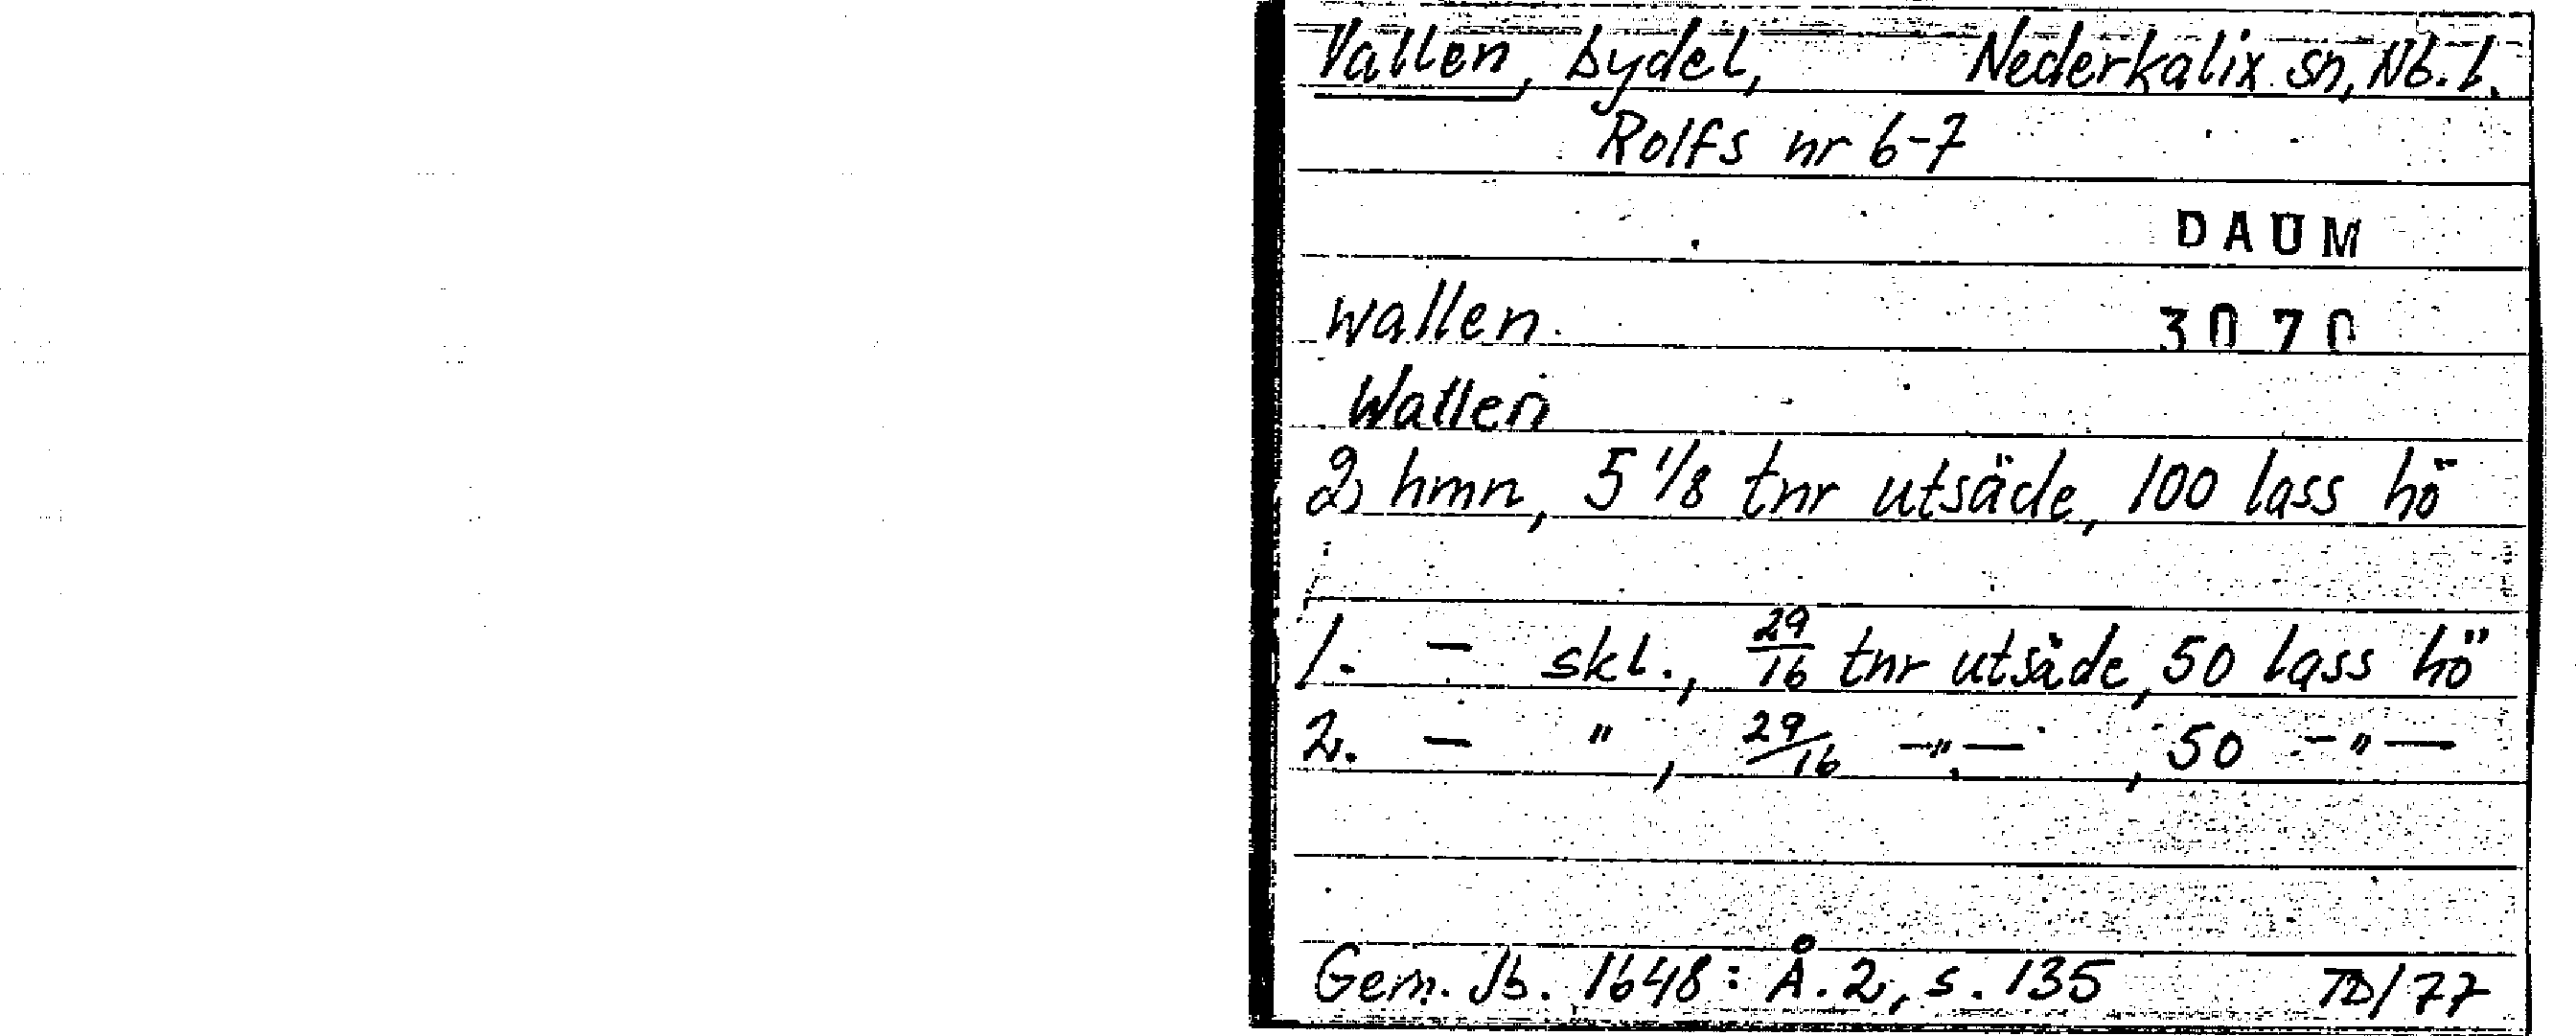 Vallen, bydel, Nederkalix sn, Nb. l.
Rolfs nr 6-7
DAUM
wallen 3070
Wallen
2 hmn, 5 1/8 tnr utsäde, 100 lass hö
1. - skl., 29/16 tnr utsäde, 50 lass hö
2. - " , 29/16 -"- , 50 -"-
Gem. Jb. 1648: Å. 2, s. 135 TB/77